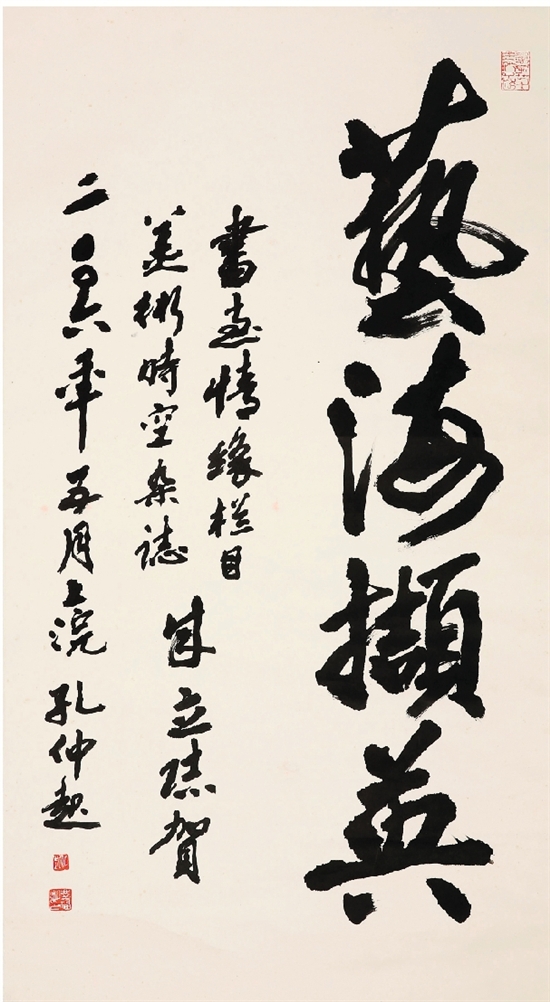 藝海擷英
書画情緣栏目
美術時空杂誌
成立誌賀
二〇〇六年五月上浣 孔仲起